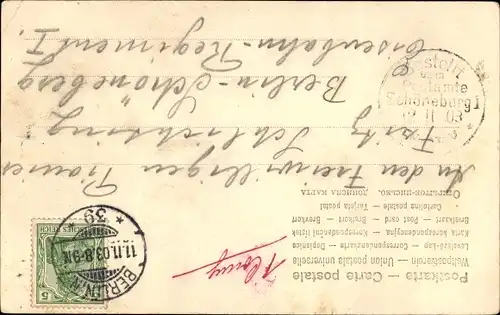 Postkarte — Carte postale
Weltpostverein — Union postale universelle
Levelező-Lap — Correspondenzkarte — Dopisnice
Karta korespondencyjna — Korespondenční lístek
Brefkort — Post card — Brevkort — Briefkaart
Cartolina postale — Tarjeta postal
ОТКРЫТОЕ ПИСЬМО. ДОПИСНА КАРТА
An den Freiwilligen Pionier
Fritz Schlichting
Berlin-Schöneberg
Eisenbahn-Regiment I.
Bestellt
vom
Postamte
Schöneberg 1
12 11 03
BERLIN N
11.11.03.8-9N.
* 39 *
DEUTSCHES REICH
5